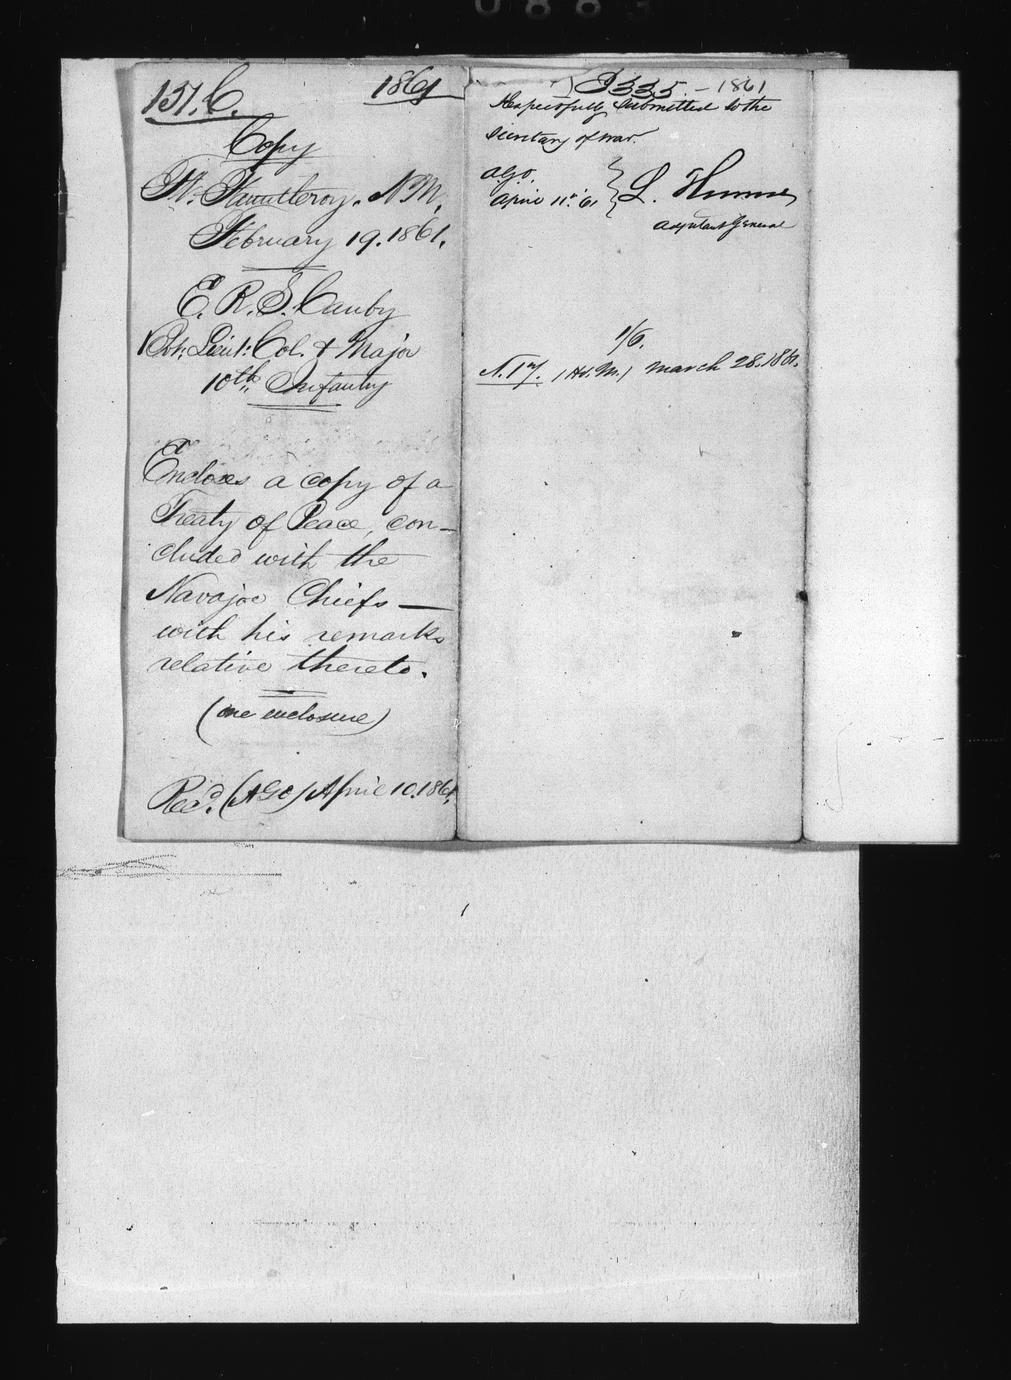 137.C. 1861
Copy
Ft. Fauntleroy. N.M.
February 19. 1861.
E. R. S. Canby
Bvt. Lieut: Col. & Major
10th. Infantry
Encloses a copy of a
Treaty of Peace, con-
cluded with the
Navajoe Chiefs—
with his remarks
relative thereto.
(one enclosure)
Recd. (AGO) April 10. 1861.
I 335. - 1861
Respectfully submitted to the
Secretary of War.
AGO.
April 11th. 61. } L. Thomas
Adjutant General
1/6.
March 28. 1861.